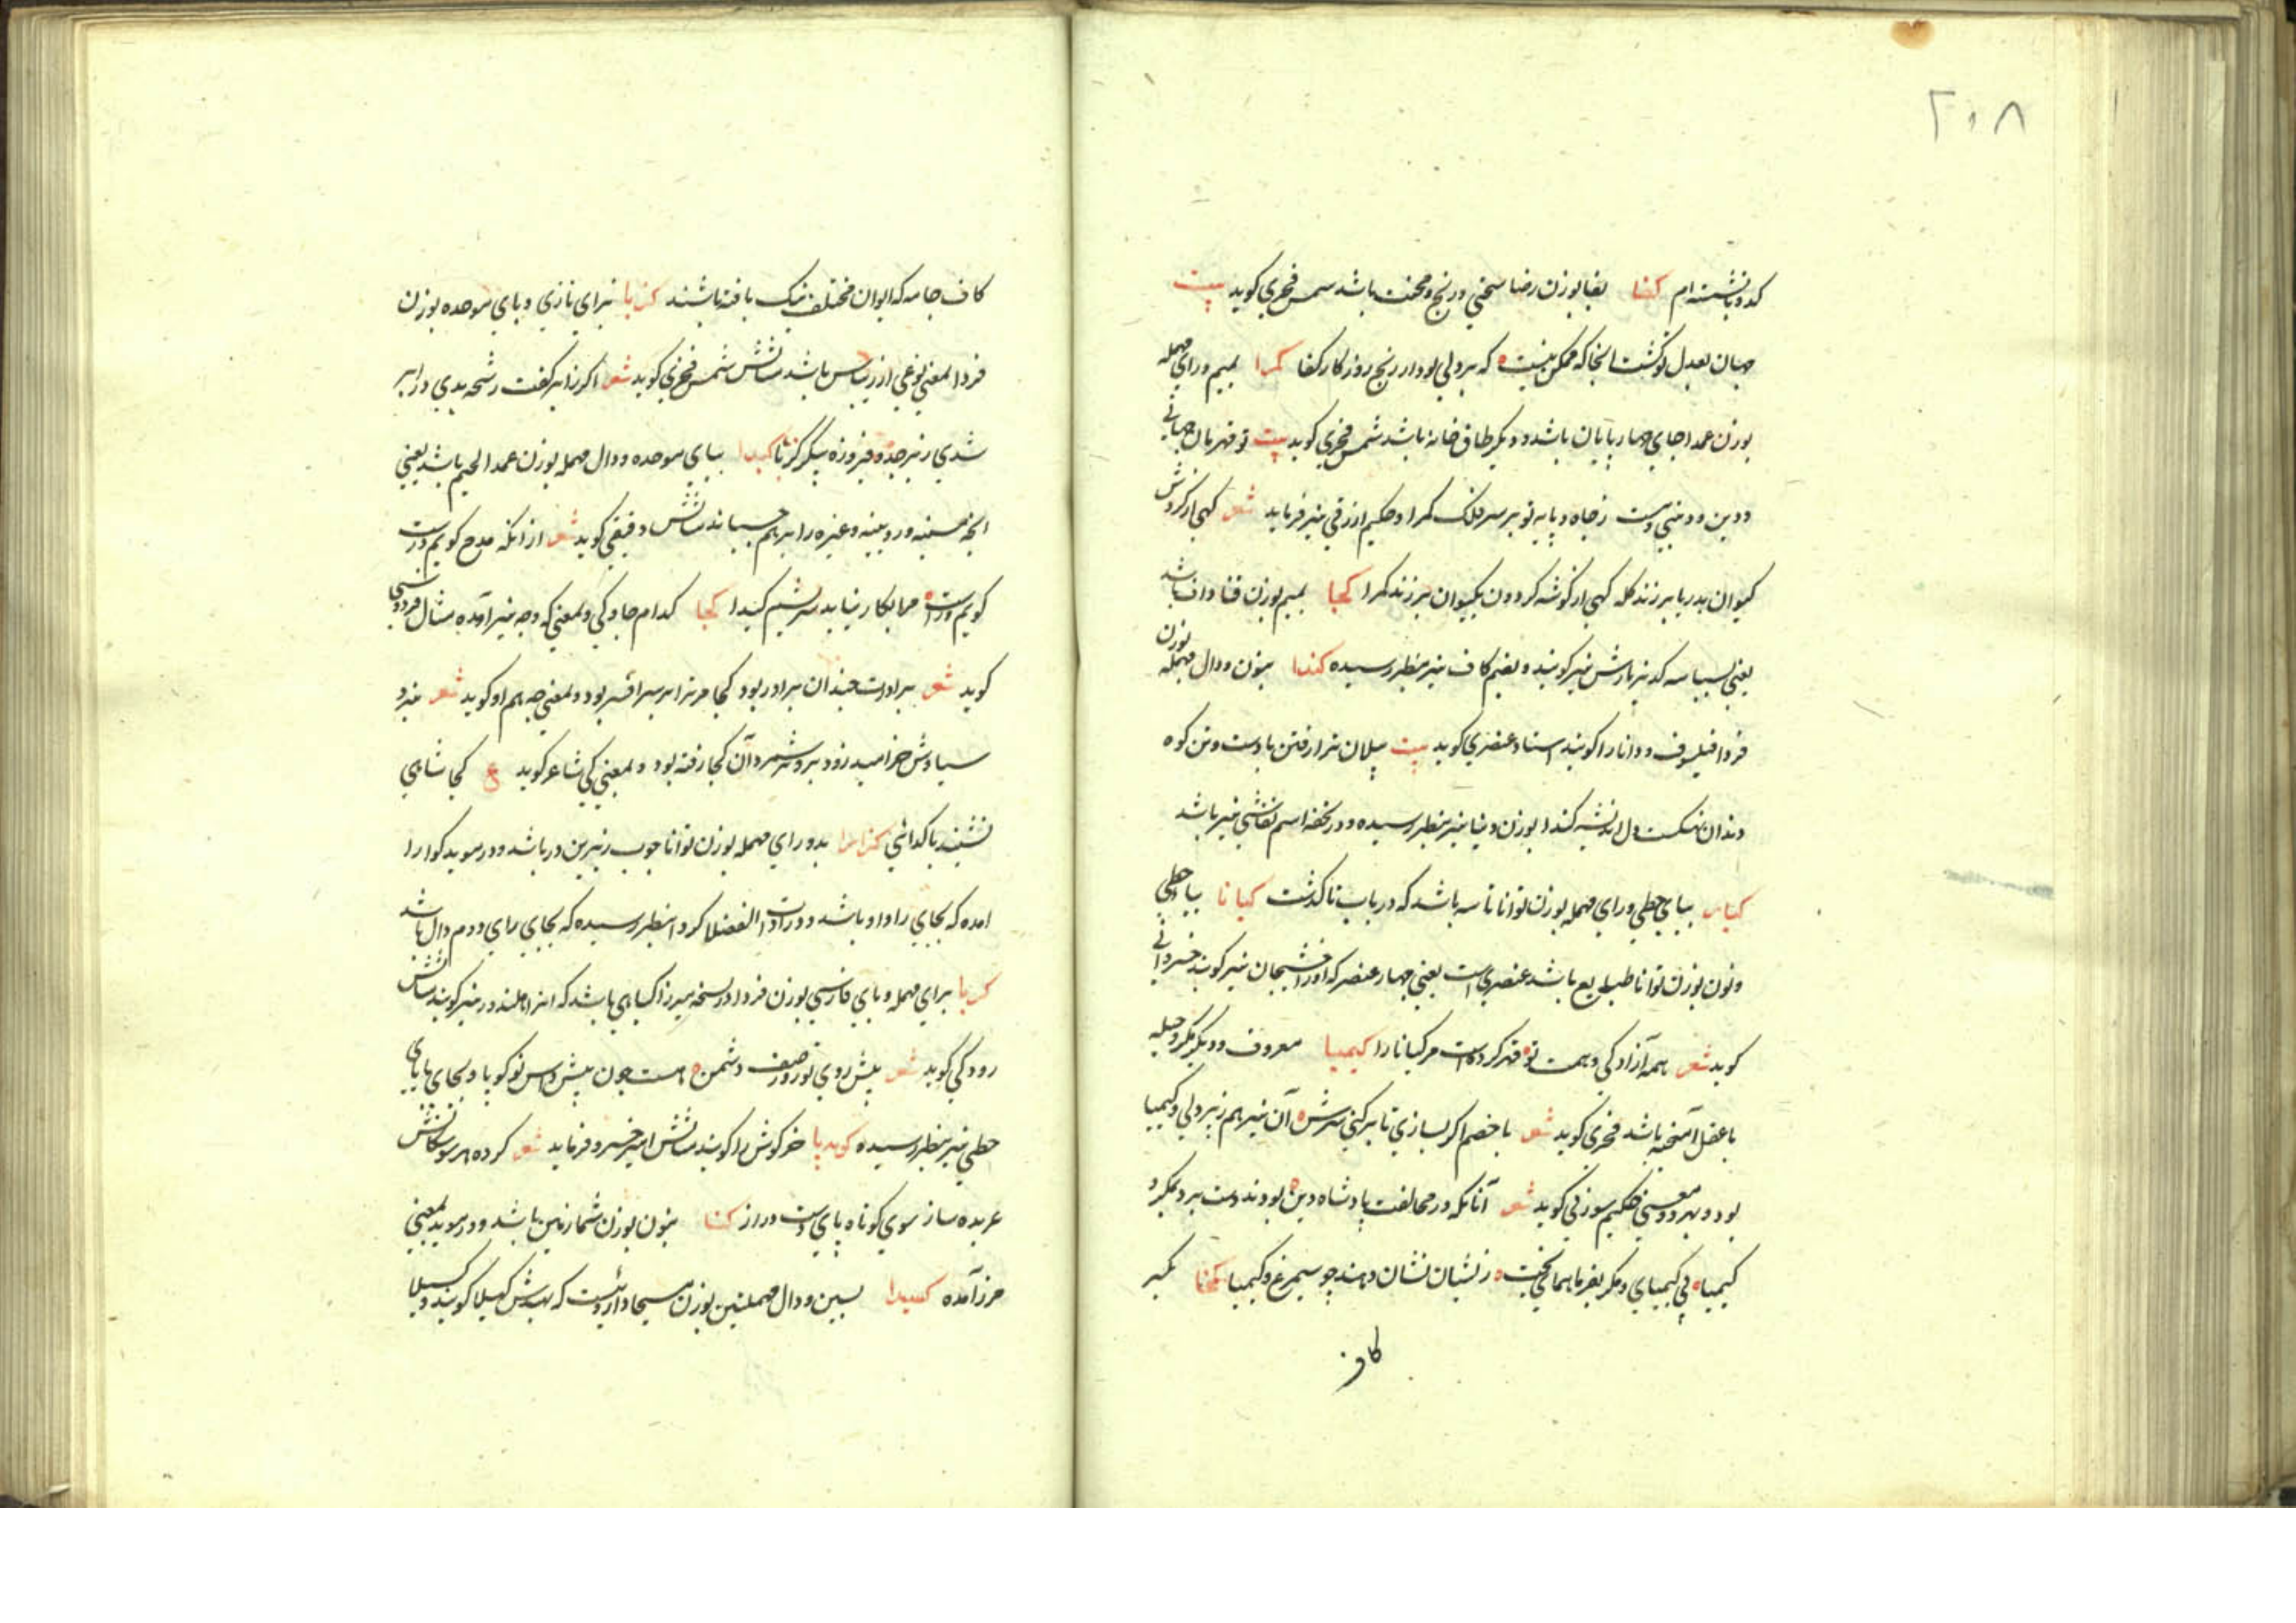 ۲۰۸
کدو بانشسته ام کفا بفا بوزن رضا سختی و رنج و محنت باشد شمس فخری کوید بیت
جهان بعدل تو کشت انجا که ممکن نیست که بر دلی بود از رنج روزکار کفا کمرا بمیم و رای مهمله
بوزن عمدا جای چهارپایان باشد و دیکر طاق خانه باشد شمس فخری کوید بیت تو قهرمان جهانی
و دین و دنیی راست ز جاه و پایه تو بر سر فلک کمرا و حکیم ازرقی نیز فرماید شعر کهی از کردش
کیوان بدریا برزند کله کهی از کوشه کردون بکیوان برزند کمرا کمجا بمیم بوزن
یعنی بسباسه که بزبازش نیز کویند و بضم کاف نیز بنظر رسیده کندا بنون و دال مهمله بوزن
فردا فیلسوف و دانا را کویند استاد عنصری کوید بیت پیلان ترا رفتن بادست و تن کوه
دندان نهنکست و دل اندیشه کندا بوزن دنیا نیز بنظر رسیده و در تحفه اسم نقاشی نیز باشد
کیارا بیای حطی و رای مهمله بوزن توانا تاسه باشد که در باب تا کذشت کیانا بیای حطی
و نون بوزن توانا طبایع باشد عنصریست یعنی چهار عنصر که اورا اخشیجان نیز کویند خسروانی
کوید شعر همه آزادکی و همت تو قهر کرده است مر کیانا را کیمیا معروف و دیکر مکر و حیله
با عقل آمیخته باشد فخری کوید شعر با خصم اکر بسازی تا برکنی سرش آن نیز هم زپر دلی و کیمیا
بود و بهر دو معنی حکیم سوزنی کوید شعر آنانکه در مخالفت پادشاه دین بودند دست برد بمکر و
کیمیا بی کیمیای و مکر بفر همای بخت زیشان نشان دهند چو سیمرغ و کیمیا کمخا بکسر
کاف
کاف جامه که الوان مختلف بیک بافته باشند کزبا بزای تازی و بای موحده بوزن
فردا بمعنی نوعی از ریباس باشد مثالش شمس فخری کوید شعر اکر نه ابر کفت رشحه بدی در ابر
شدی زبرجد و فیروزه پیکر کزبا کبدا ببای موحده و دال مهمله بوزن عمدا لحیم باشد یعنی
انچه مسینه و رویینه و غیره را بر هم چسباند مثالش دقیقی کوید شعر از انکه مدح تو کویم درست
کویم و راست مرا بکار نیاید سریشم و کبدا کجا کدام جا و کی و بمعنی که و چه نیز آمده مثال فردوسی
کوید شعر برادرت چندان برادر بود کجا مر ترا بر سر افسر بود و بمعنی چه هم او کوید شعر بنزد
سیاوش خرامید زود برو بر شمرد آن کجا رفته بود و بمعنی کی شاعر کوید ع کجا شاهی
نشیند با کدائی کزارا بدو رای مهمله بوزن توانا چوب زیرین در باشد و در موید کوارا
امده که بجای را واو باشد و در ادات الفضلا کردا بنظر رسیده که بجای رای دوم دال باشد
کرپا برای مهمله و بای فارسی بوزن فردا در نسخه میرزا کیاهی باشد که انرا هلندور نیز کویند مثالش
رودکی کوید شعر پیش روی تو روز صف دشمن هست چون پیش داس نو کرپا و بجای پا یای
حطی نیز بنظر رسیده کوبدپا خرکوش را کویند مثالش امیر خسرو فرماید شعر کرده هر سو سکانش
عربده ساز سوی کوتاه پای دست دراز کنا بنون بوزن شما زمین باشد و در موید بمعنی
مرز آمده کسدا بسین و دال مهملتین بوزن مسیحا داروئیست که بهندش کهیلا کویند و کسیلا